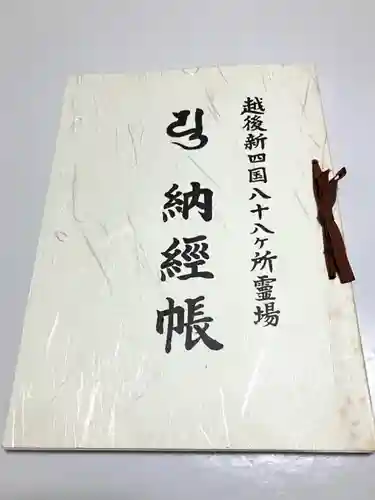 越後新四国八十八ヶ所霊場
納經帳